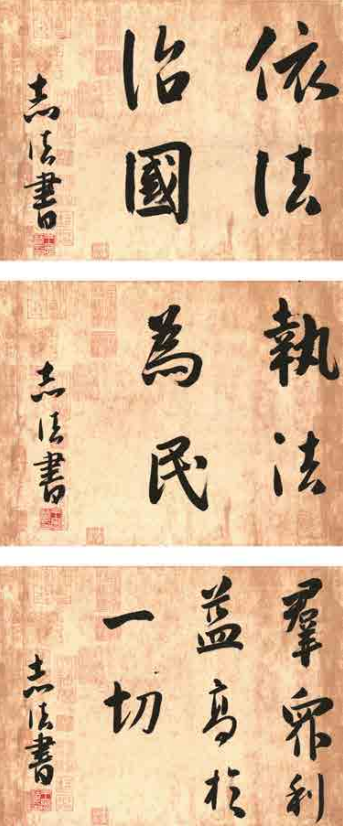 依法
治國
志法書
執法
為民
志法書
羣眾利
益高於
一切
志法書